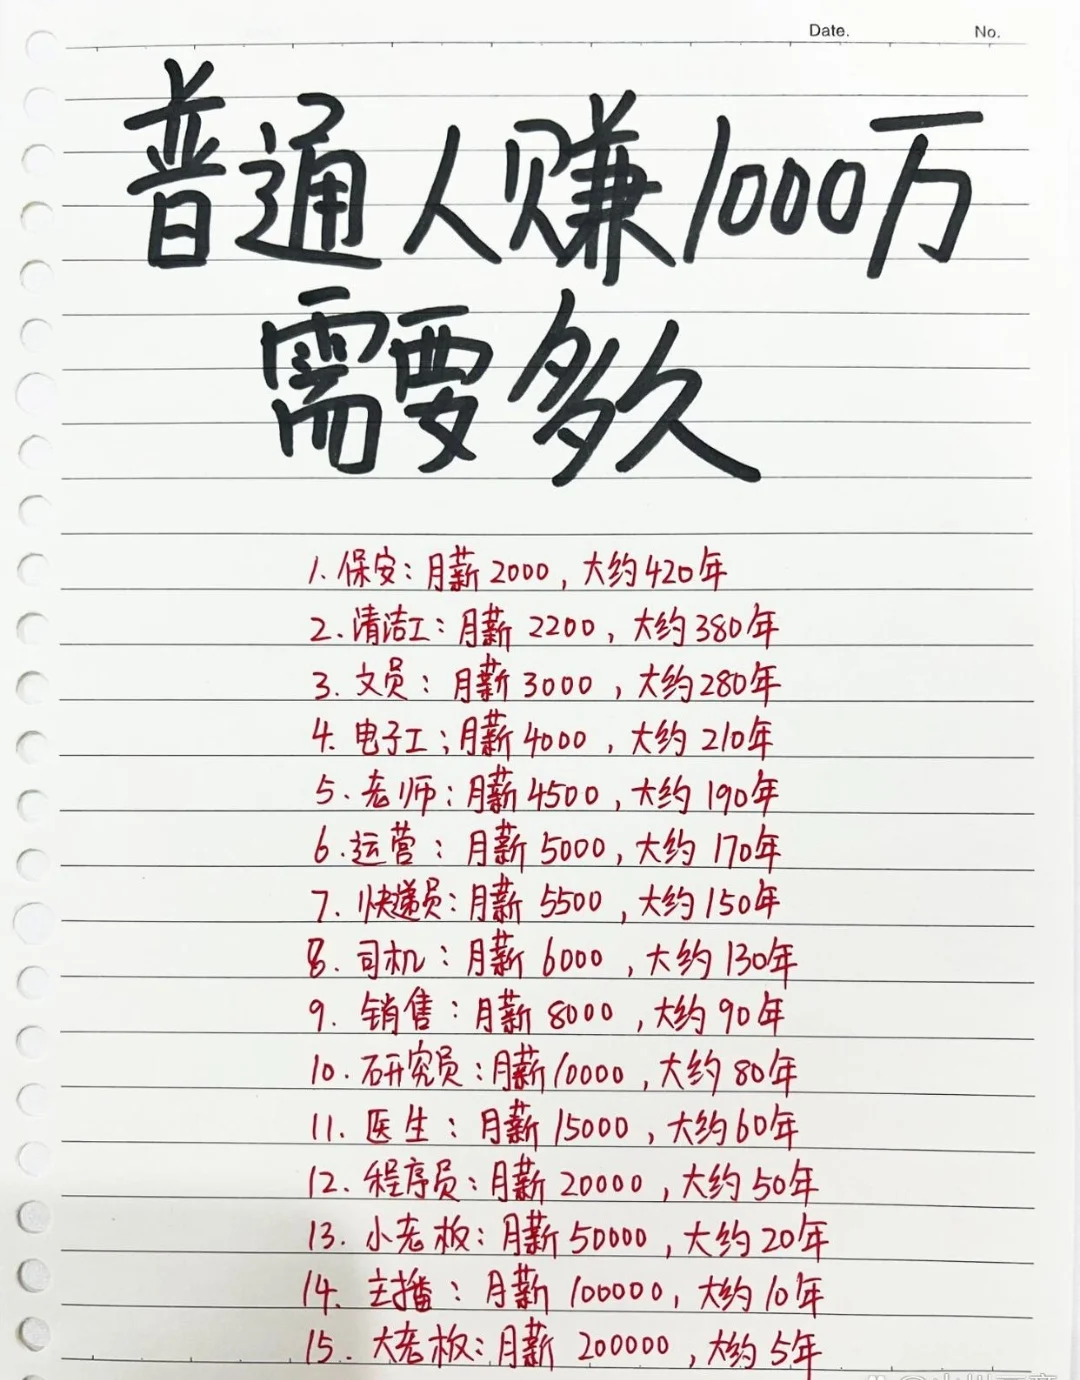 Date.
No.
普通人赚1000万
需要多久
1.保安:月薪2000,大约420年
2.清洁工:月薪2200,大约380年
3.文员:月薪3000,大约280年
4.电子工;月薪4000,大约210年
5.老师:月薪4500,大约190年
6.运营:月薪5000,大约170年
7.快递员:月薪5500,大约150年
8.司机:月薪6000,大约130年
9.销售:月薪8000,大约90年
10.研究员:月薪10000,大约80年
11.医生:月薪15000,大约60年
12.程序员:月薪20000,大约50年
13.小老板:月薪50000,大约20年
14.主播:月薪100000,大约10年
15.大老板:月薪200000,大约5年